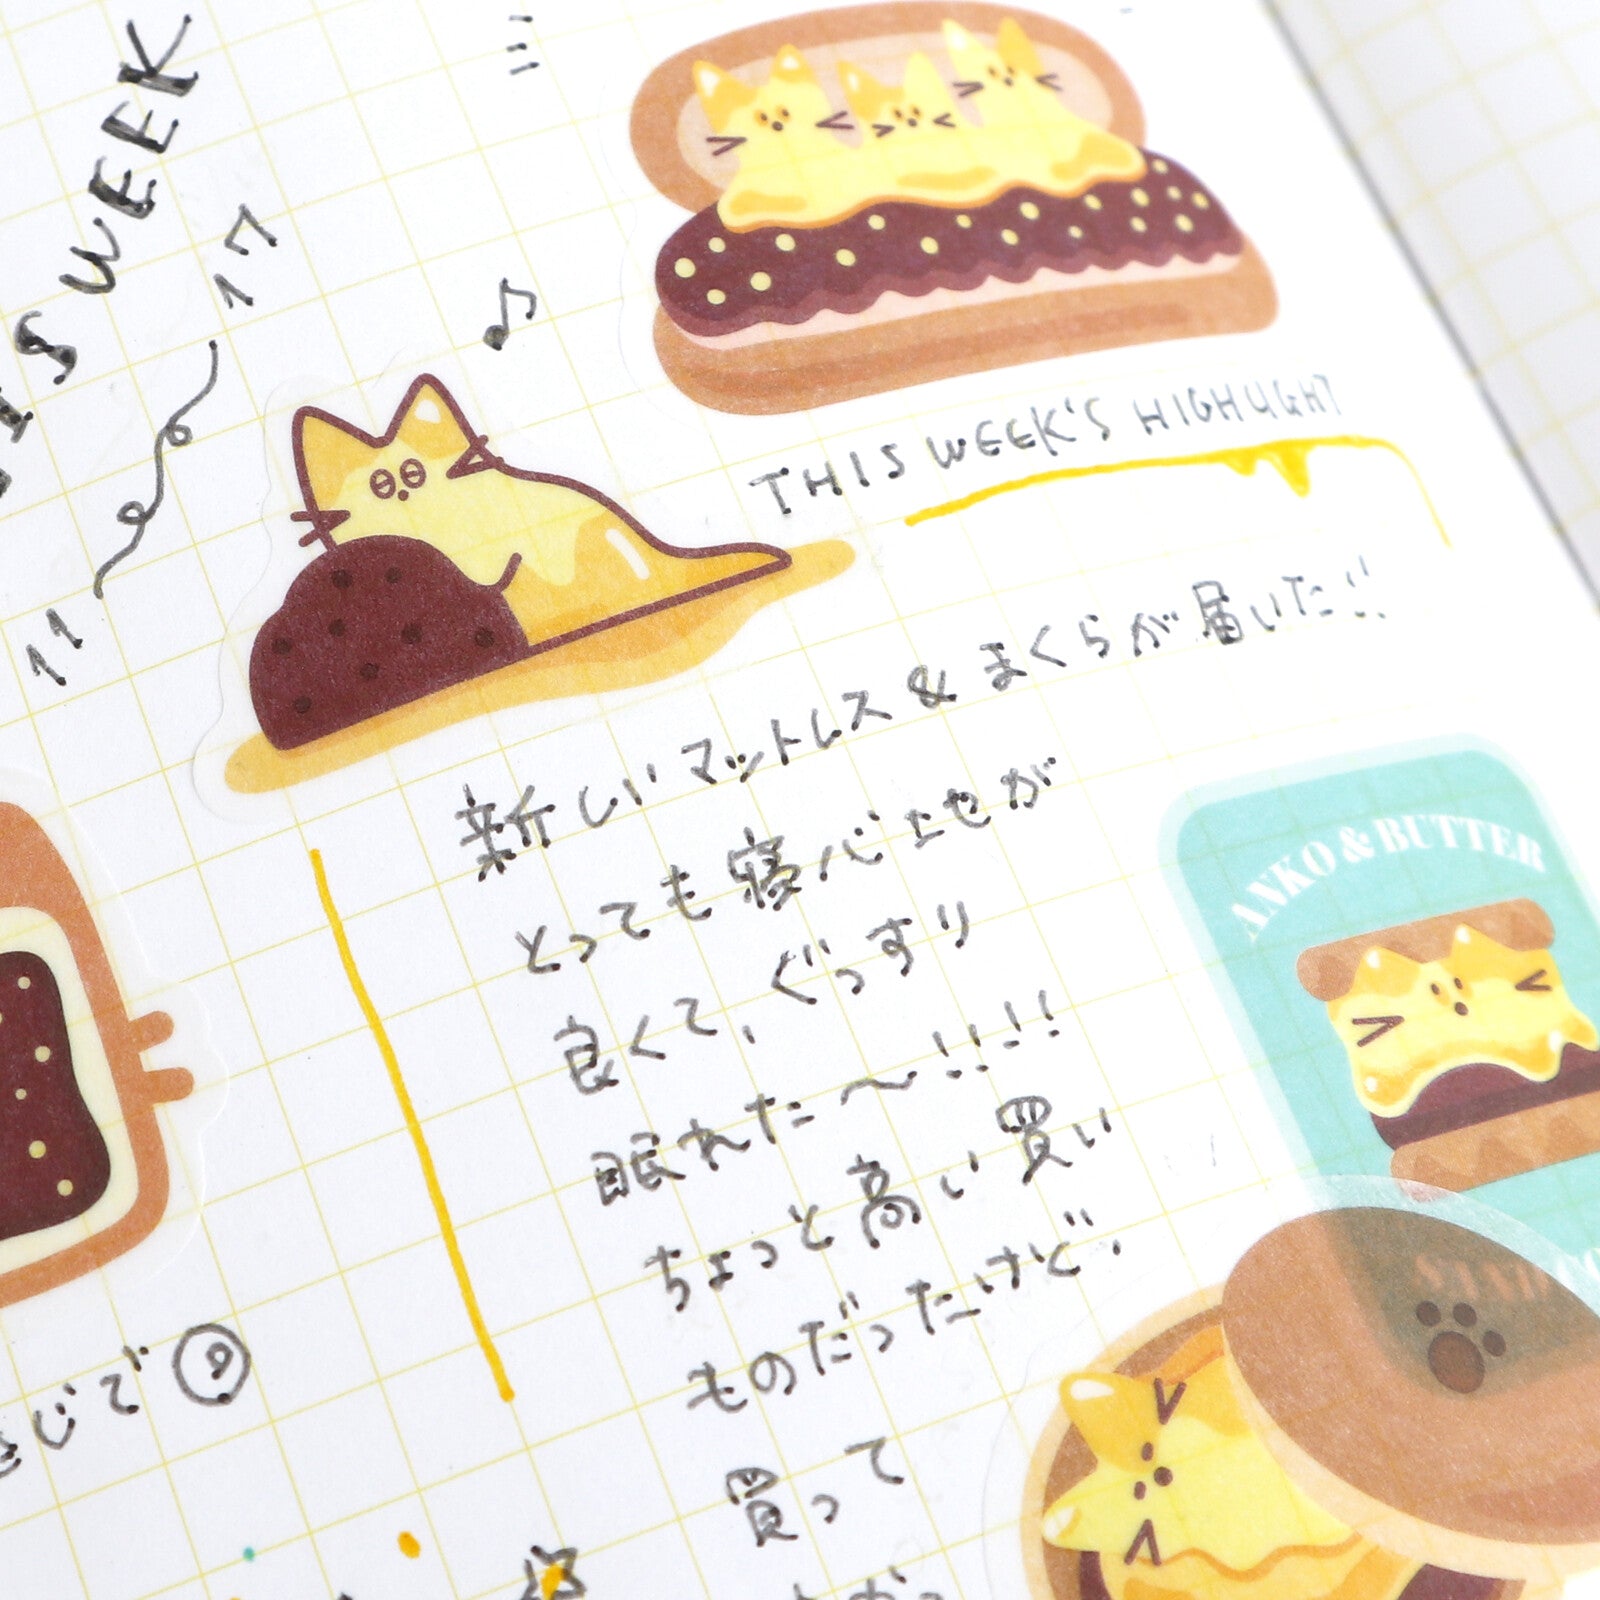 WEEK
11
17
THIS WEEK'S HIGHLIGHT
新しいマットレス&まくらが届いた!!
とっても寝心地が
良くて、ぐっすり
眠れた〜!!!!
ちょっと高い買い
ものだったけど…
買って
ANKO & BUTTER
じで